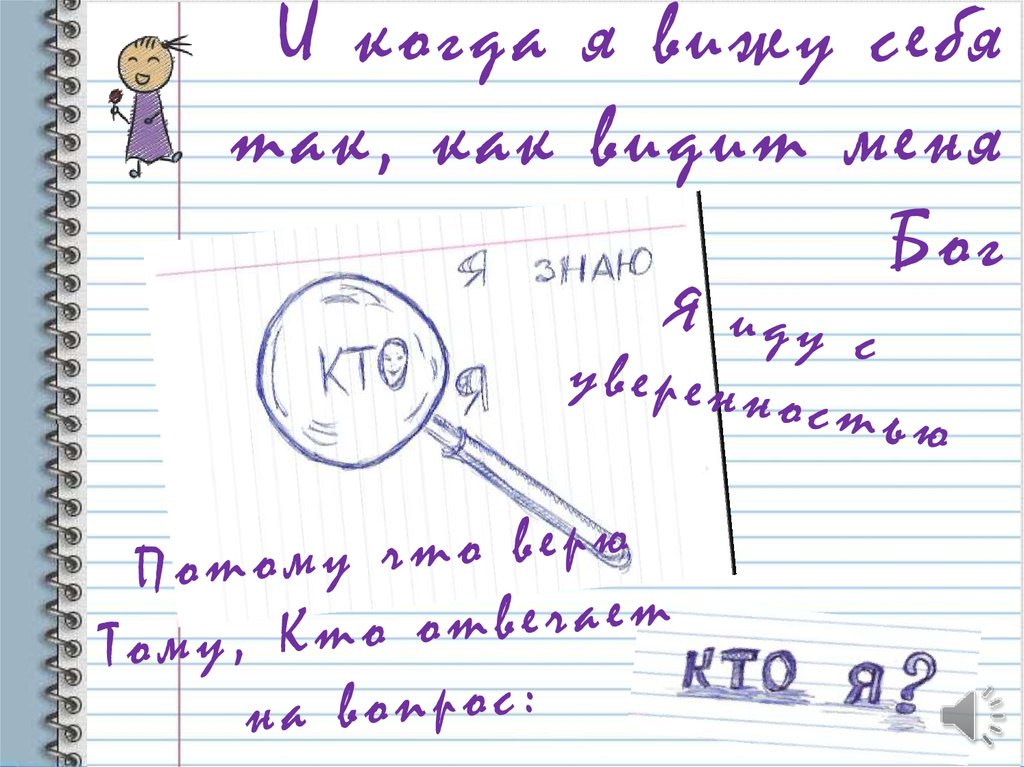 И когда я вижу себя
так, как видит меня
Бог
Я ЗНАЮ
КТО Я
Я иду с
уверенностью
Потому что верю
Тому, Кто отвечает
на вопрос:
КТО Я?